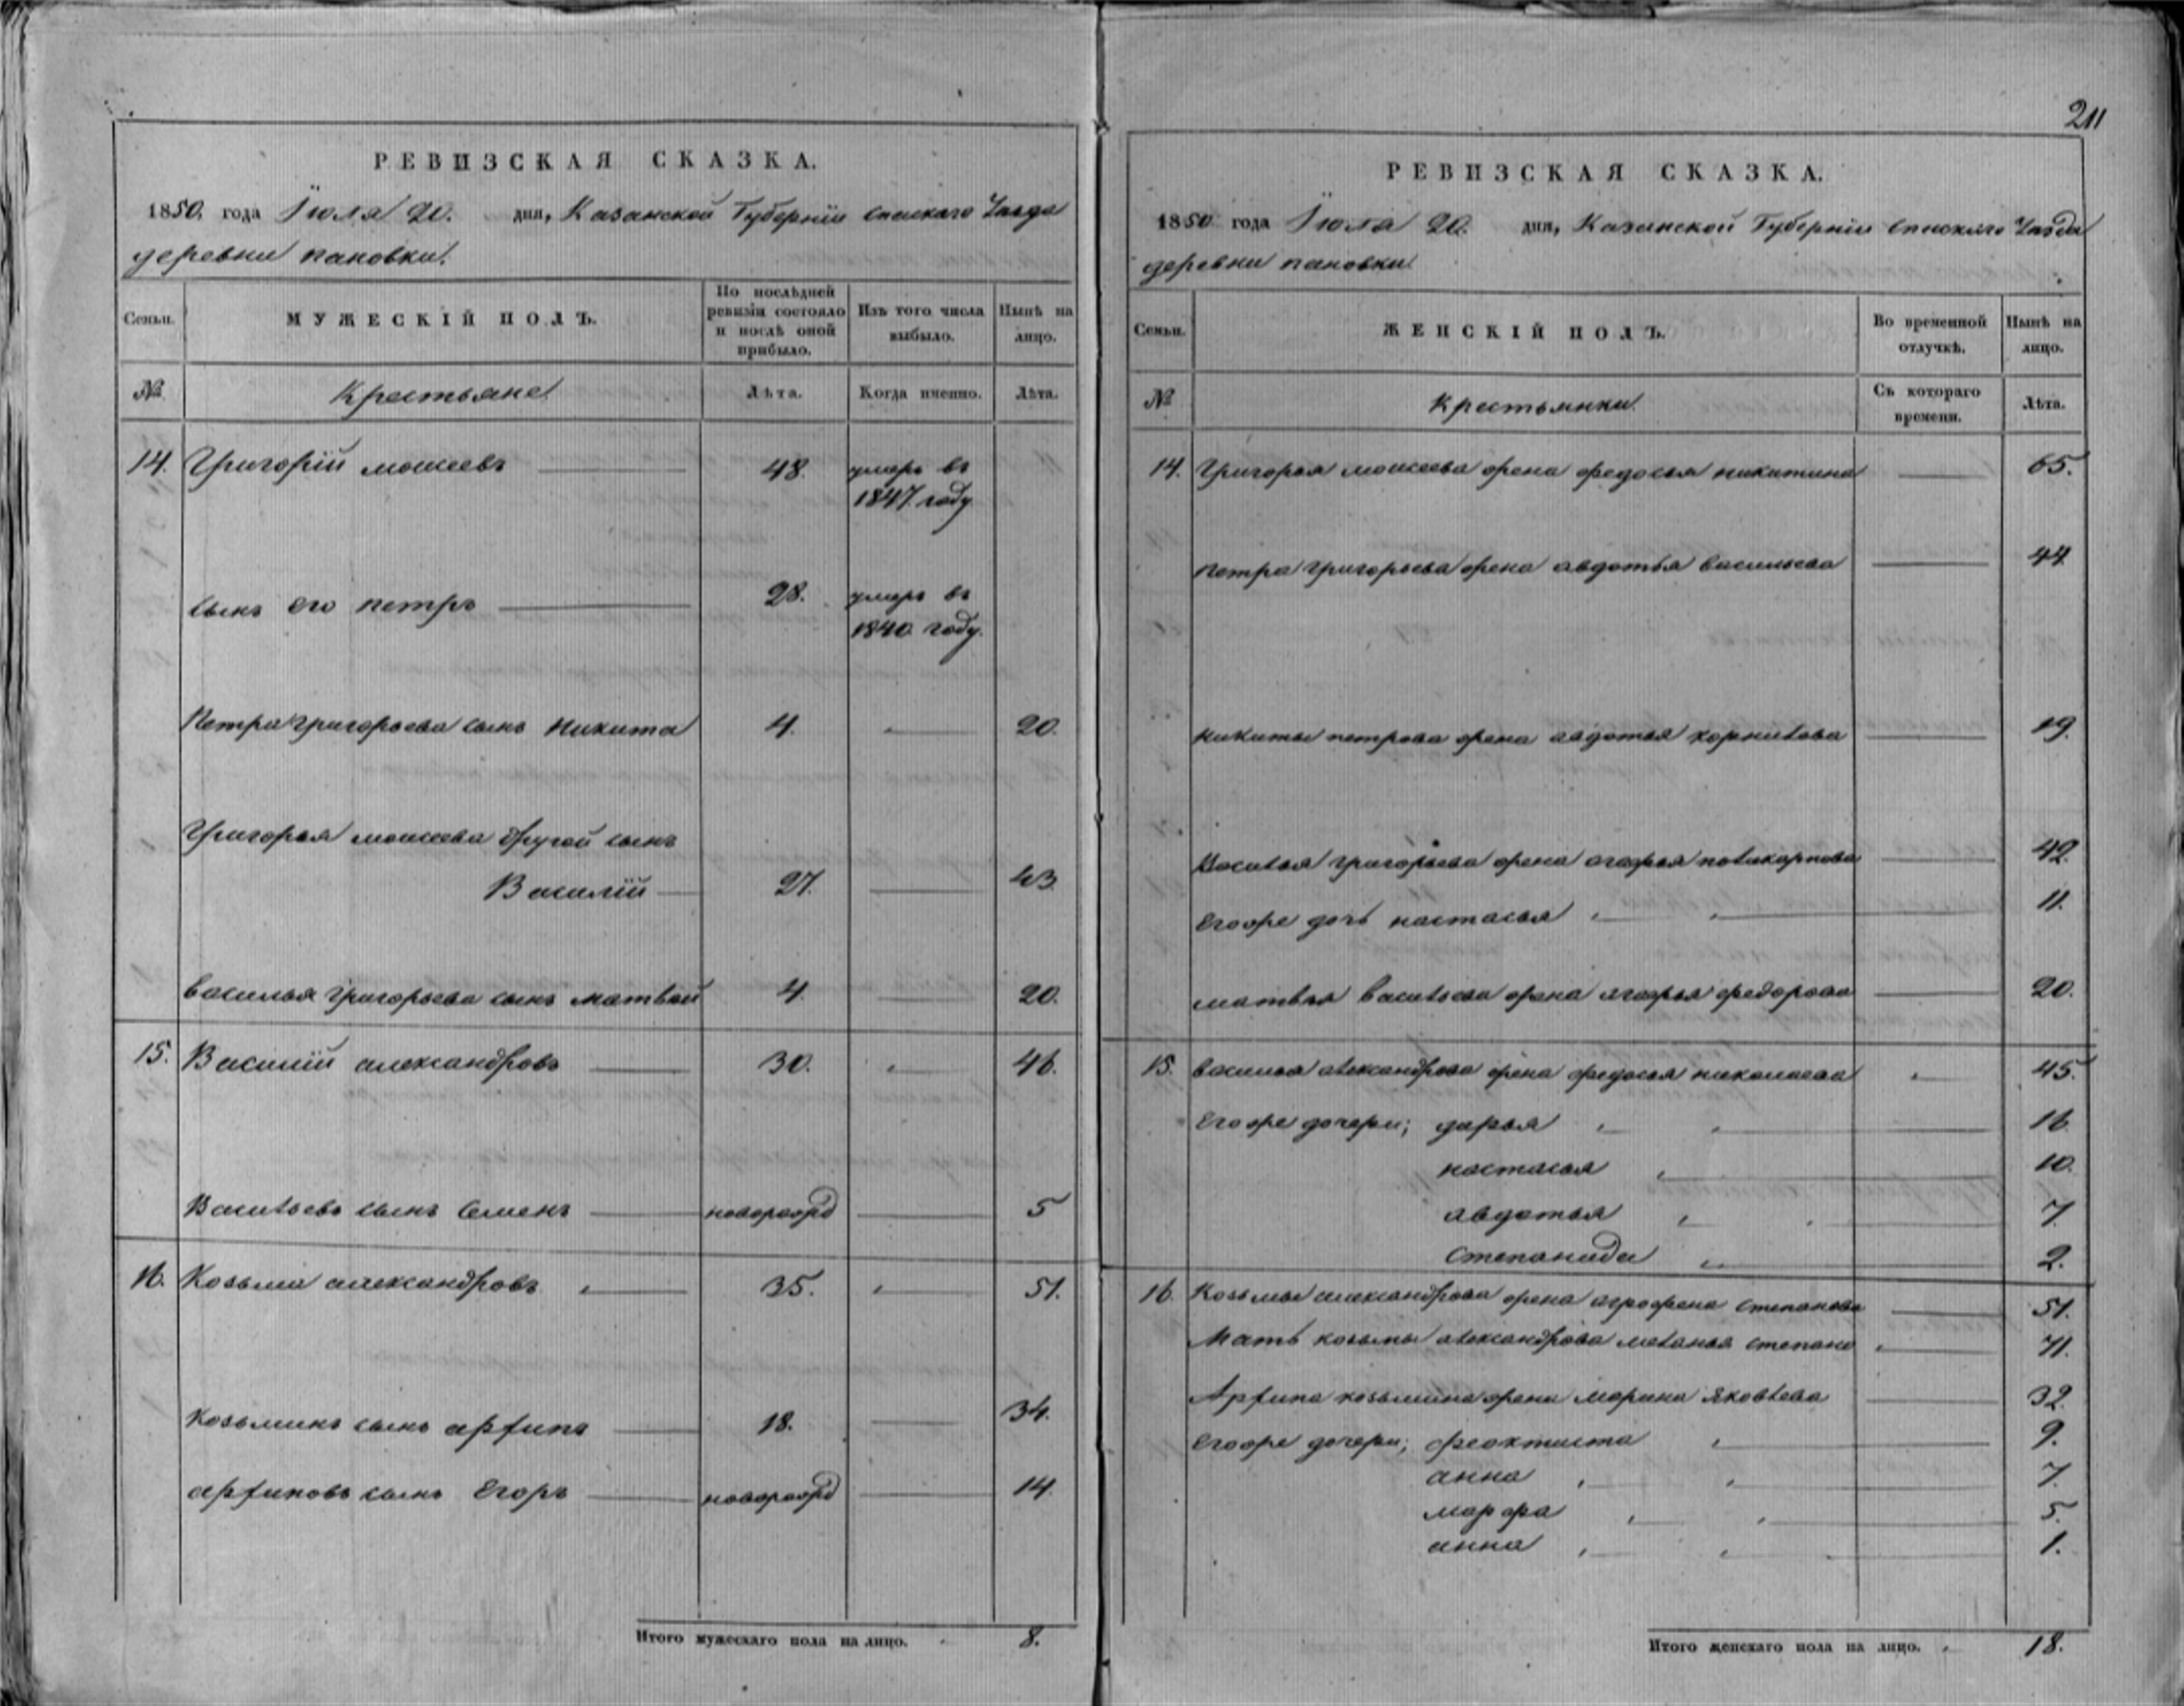 РЕВИЗСКАЯ СКАЗКА.
1850. года Іюля 20. дня, Казанской Губерніи Спаскаго Уезда
деревни пановки.
Семьи. МУЖЕСКІЙ ПОЛЪ. По послѣдней ревизіи состояло и послѣ оной прибыло. Изъ того числа выбыло. Нынѣ на лицо.
№ Крестьяне Лѣта. Когда именно. Лѣта.
14. Григорій моисеевъ 48. умеръ въ
1847. году
сынъ его петръ 28. умеръ въ
1840. году.
Петра григорьева сынъ Никита 4. 20.
Григорья моисеева другой сынъ
Василій 27. 43.
василья григорьева сынъ матвей 4. 20.
15. Василій александровъ 30. 46.
Васильевъ сынъ Семенъ новорожд 5
16. Козьма александровъ 35. 51.
Козьминъ сынъ архипъ 18. 34.
архиповъ сынъ Егоръ новорожд 14.
Итого мужескаго пола на лицо. 8.
211
РЕВИЗСКАЯ СКАЗКА.
1850 года Іюля 20. дня, Казанской Губерніи Спаскаго Уезда
деревни пановки
Семьи. ЖЕНСКІЙ ПОЛЪ. Во временной отлучкѣ. Нынѣ на лицо.
№ Крестьянки. Съ котораго времени. Лѣта.
14. Григорья моисеева жена федосья никитина 65.
петра григорьева жена авдотья васильева 44
никиты петрова жена авдотья корнилова 19.
Василья григорьева жена агафья поликарпова 42.
Егоже дочь настасья 11.
матвея васильева жена агафья федорова 20.
15. василья александрова жена федосья николаева 45.
Егоже дочери; дарья 16
настасья 10.
авдотья 7.
степанида 2.
16. Козьмы александрова жена аграфена степанова 51.
Мать козьмы александрова меланья степано 71.
Архипа козьмина жена марина яковлева 32.
Егоже дочери; феоктиста 9.
анна 7.
марфа 5.
анна 1.
Итого женскаго пола на лицо. 18.